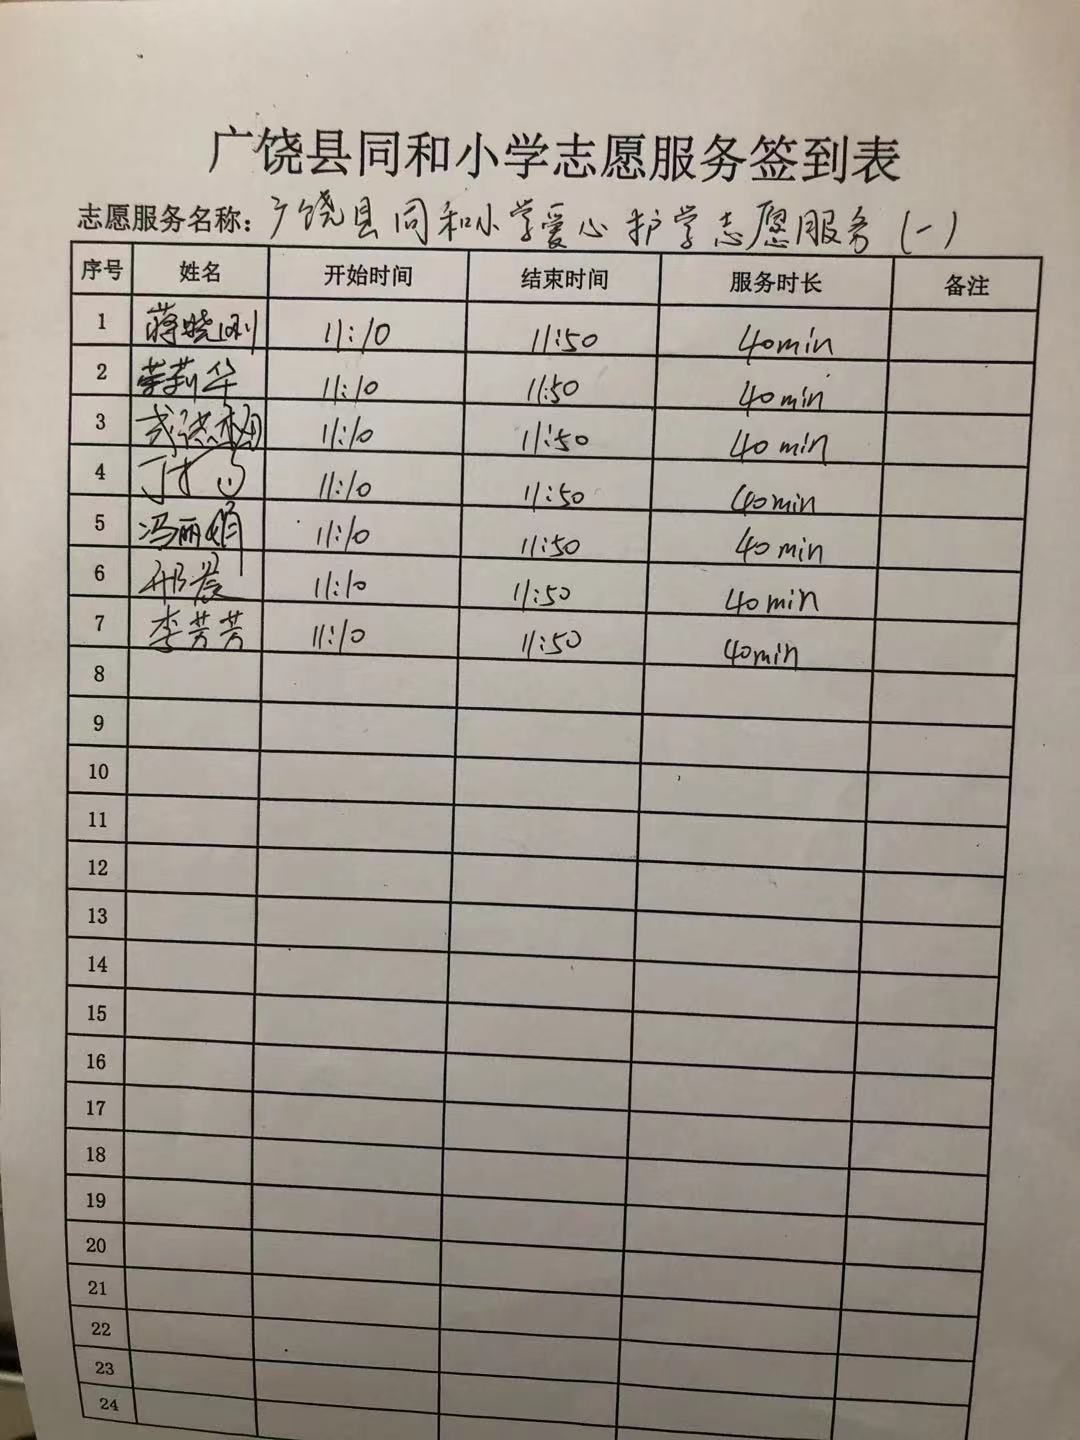 广饶县同和小学志愿服务签到表
志愿服务名称：广饶县同和小学爱心护学志愿服务（一）
序号 姓名 开始时间 结束时间 服务时长 备注
1 蒋晓刚 11:10 11:50 40min
2 荣莉华 11:10 11:50 40min
3 11:10 11:50 40min
4 11:10 11:50 40min
5 冯丽娟 11:10 11:50 40min
6 邢晨 11:10 11:50 40min
7 李芳芳 11:10 11:50 40min
8
9
10
11
12
13
14
15
16
17
18
19
20
21
22
23
24